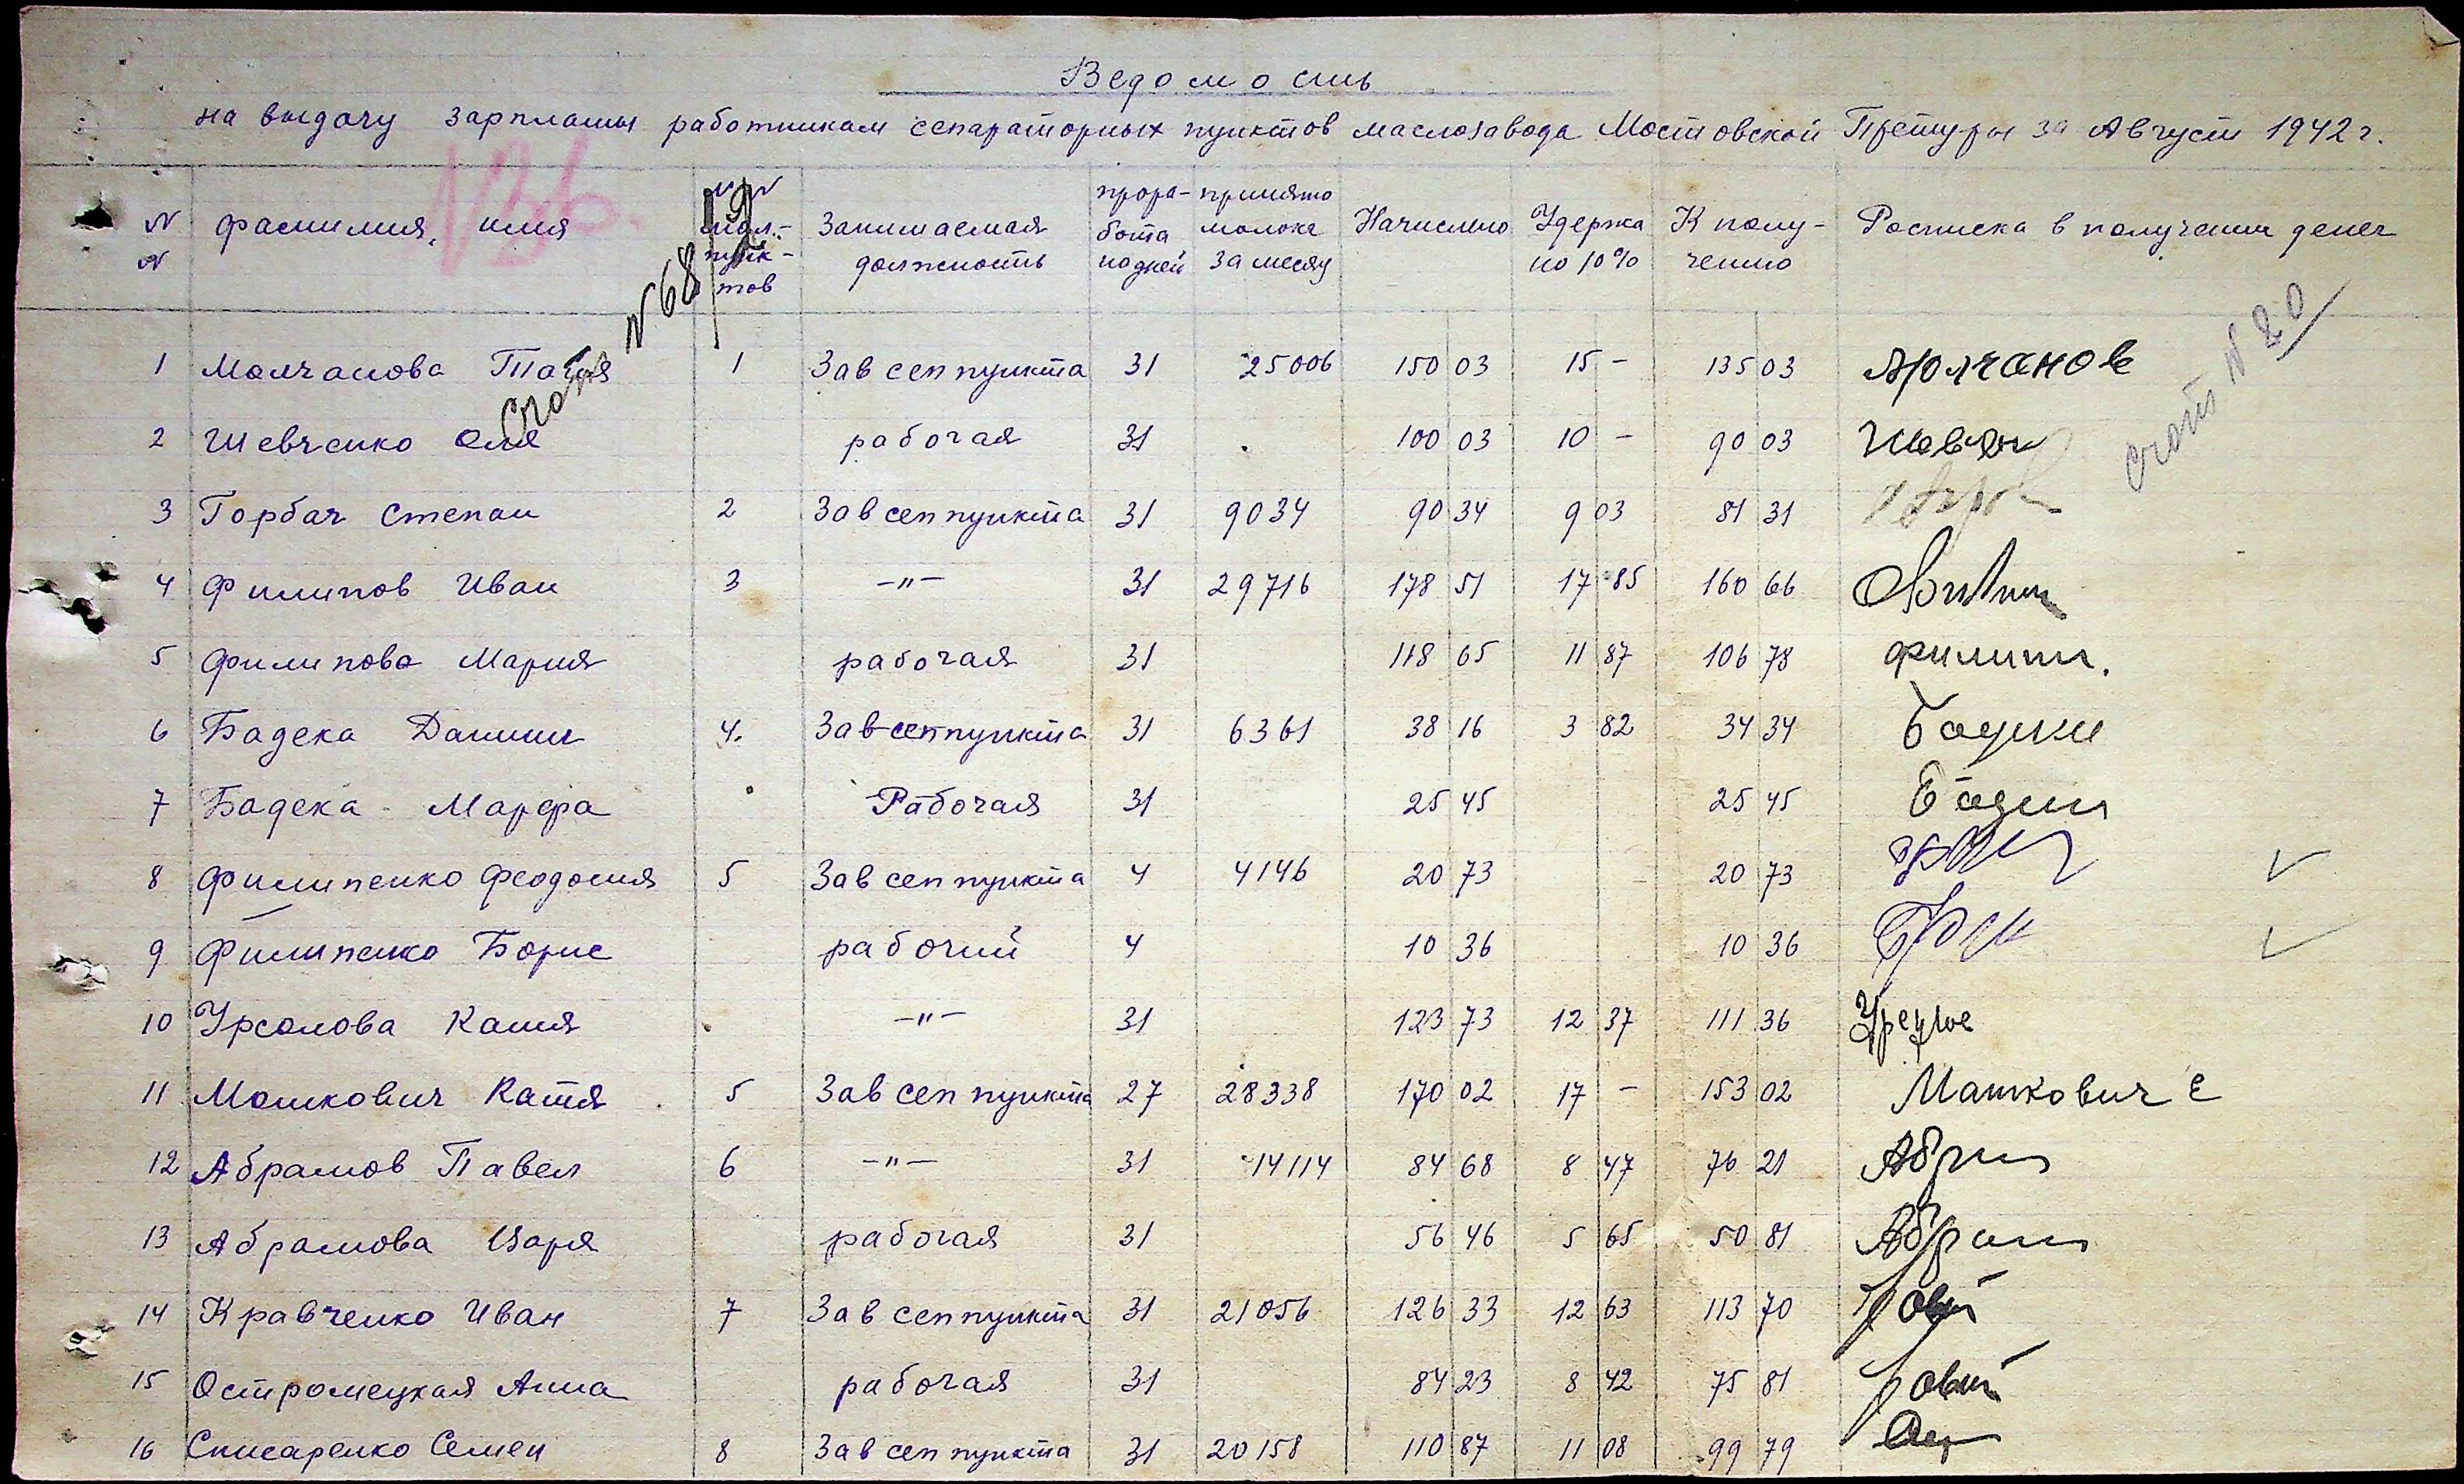 Ведомость
на выдачу зарплаты работникам сепараторных пунктов маслозавода Мостовской Претуры за Август 1942 г.
N N фамилия, имя NN мол.-пунк-тов Занимаемая должность прора-бота но дней принято молока за месяц Начислено Удержа но 10% К полу-чению Росписка в получении денег
N 36.
Счот N 68
Счот N 20
1 Молчанова Таня 1 Зав сеп пункта 31 25006 150 03 15 – 135 03 Молчанов
2 Шевченко Оля рабочая 31 100 03 10 – 90 03 Шевчен
3 Горбач Степан 2 Зав сеп пункта 31 9034 90 34 9 03 81 31
4 Филипов Иван 3 –"– 31 29716 178 51 17 85 160 66
5 Филипова Мария рабочая 31 118 65 11 87 106 78 Филип.
6 Бадека Даниил 4. Зав сеп пункта 31 6361 38 16 3 82 34 34
7 Бадека Марфа Рабочая 31 25 45 25 45
8 Филипенко Феодосия 5 Зав сеп пункта 4 4146 20 73 20 73
9 Филипенко Борис рабочий 4 10 36 10 36
10 Урсолова Катя –"– 31 123 73 12 37 111 36
11 Мошкович Катя 5 Зав сеп пункта 27 28338 170 02 17 – 153 02 Машкович Е
12 Абрамов Павел 6 –"– 31 14114 84 68 8 47 76 21
13 Абрамова Варя рабочая 31 56 46 5 65 50 81 Абрам
14 Кравченко Иван 7 Зав сеп пункта 31 21056 126 33 12 63 113 70
15 Остромецкая Анна рабочая 31 84 23 8 42 75 81
16 Списаренко Семен 8 Зав сеп пункта 31 20158 110 87 11 08 99 79